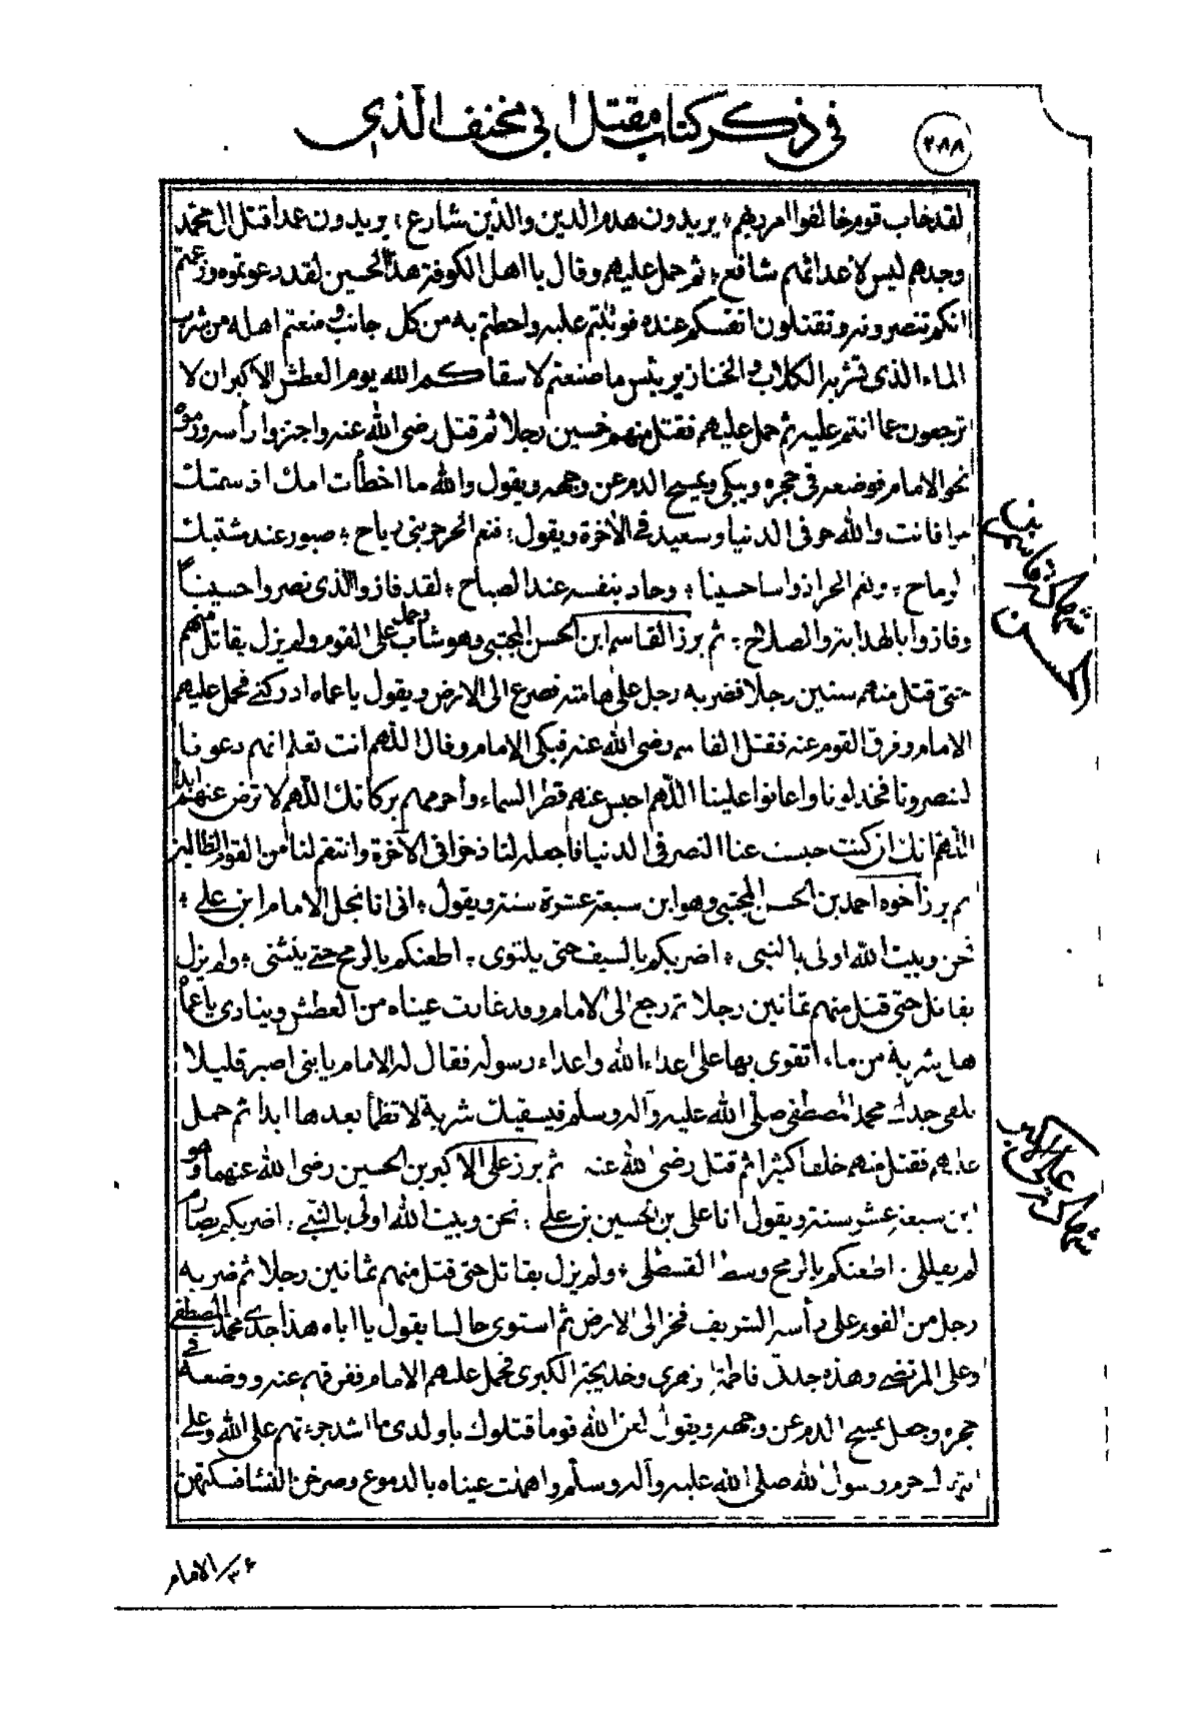 ٢٨٨
في ذكر كتاب مقتل ابي مخنف الذي
لقد خاب قوم خالفوا امر ربهم ؛ يريدون هدم الدين والدين شارع ؛ يريدون عمدا قتل ال محمد
وجدهم ليس لاعدائهم شافع ؛ ثم حمل عليهم وقال يا اهل الكوفة هذا الحسين لقد دعوتموه وزعمتم
انكم تنصرونه وتقتلون انفسكم عنده فوثبتم عليه واحطتم به من كل جانب ومنعتم اهله من شرب
الماء الذي تشربه الكلاب والخنازير بئس ما صنعتم لا سقاكم الله يوم العطش الاكبر ان لا
ترجعون عما انتم عليه ثم حمل عليهم فقتل منهم خمسين رجلا ثم قتل رضي الله عنه واجتزوا رأسه ورموه
نحو الامام فوضعه في حجره ويبكي ويمسح الدم عن وجهه ويقول والله ما اخطأت امك اذ سمتك
حرا فانت والله حر في الدنيا وسعيد في الآخرة ويقول ؛ فنعم الحر حر بني رياح ؛ صبور عند مشتبك
الرماح ؛ ونعم الحر اذ واسا حسينا ؛ وجاد بنفسه عند الصباح ؛ لقد فازوا الذي نصروا حسيناً
وفازوا بالهداية والصلاح ؛ ثم برز القاسم ابن الحسن المجتبى وهو شاب وحمل على القوم ولم يزل يقاتل منهم
حتى قتل منهم ستين رجلا فضربه رجل على هامته فصرع الى الارض ويقول يا عماه ادركني فحمل عليهم
الامام وفرق القوم عنه فقتل القاسم رضي الله عنه فبكى الامام وقال اللهم انت تعلم انهم دعونا
لينصرونا فخذلونا واعانوا علينا اللهم احبس عنهم قطر السماء واحرمهم بركاتك اللهم لا ترض عنهم ابدا
اللهم انك ان كنت حبست عنا النصر في الدنيا فاجعله لنا ذخرا في الآخرة وانتقم لنا من القوم الظالمين
ثم برز اخوه احمد بن الحسن المجتبى وهو ابن سبعة عشرة سنة ويقول ؛ اني انا نجل الامام ابن علي ؛
نحن وبيت الله اولى بالنبي ؛ اضربكم بالسيف حتى يلتوي ؛ اطعنكم بالرمح حتى ينثني ؛ ولم يزل
يقاتل حتى قتل منهم ثمانين رجلا ثم رجع الى الامام وقد غارت عيناه من العطش وينادي يا عماه
هل شربة من ماء اتقوى بها على اعداء الله واعداء رسوله فقال له الامام يا بني اصبر قليلا
تلقى جدك محمد المصطفى صلى الله عليه وآله وسلم فيسقيك شربة لا تظمأ بعدها ابدا ثم حمل
عليهم فقتل منهم خلقا كثيرا ثم قتل رضي الله عنه ثم برز علي الاكبر بن الحسين رضي الله عنهما وهو
ابن سبعة عشر سنة ويقول انا علي بن الحسين بن علي ؛ نحن وبيت الله اولى بالنبي . اضربكم بصارم
لم يفلل . اطعنكم بالرمح وسط القسطل ؛ ولم يزل يقاتل حتى قتل منهم ثمانين رجلا ثم ضربه
رجل من القوم على رأسه الشريف فخر الى الارض ثم استوى جالسا يقول يا اباه هذا جدي محمد المصطفى
وعلي المرتضى وهذه جدتي فاطمة الزهرى وخديجة الكبرى فحمل عليهم الامام ففرقهم عنه ووضعه في
حجره وجعل يمسح الدم عن وجهه ويقول لعن الله قوما قتلوك يا ولدي ما اشد جرءتهم على الله وعلى
انتهاك حرم رسول الله صلى الله عليه وآله وسلم واهملت عيناه بالدموع وصرخن النساء فسكتهن
شهادة قاسم بن
الحسن
شهادة علي الاكبر
٣٦/ الامام